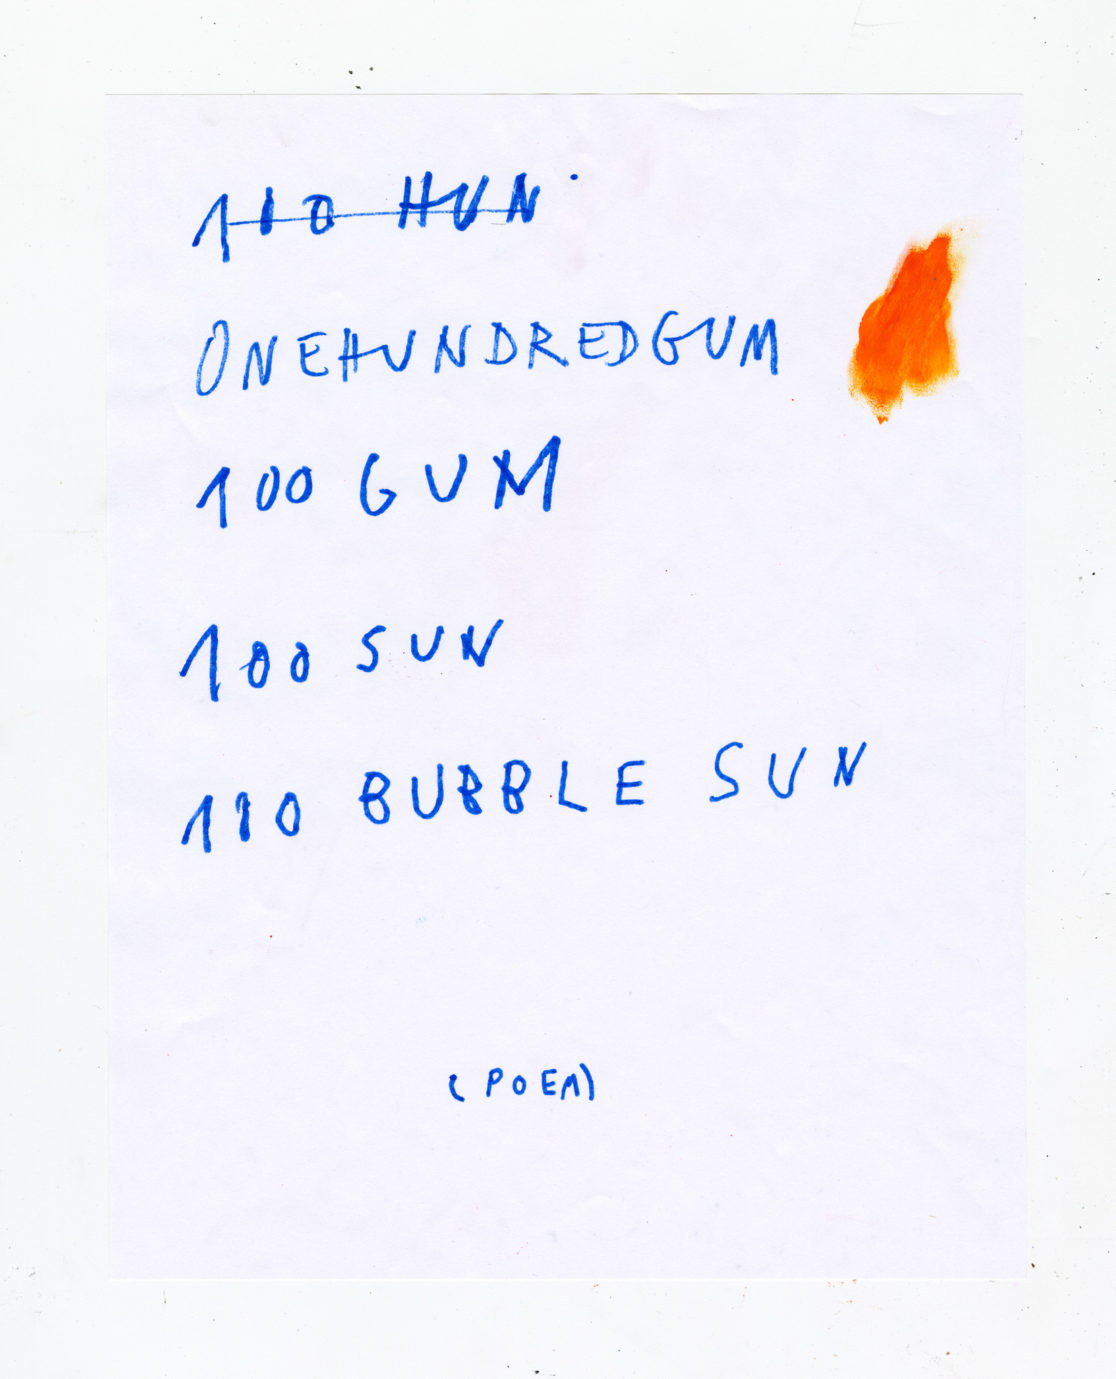 110 HUN
ONEHUNDREDGUM
100 GUM
100 SUN
110 BUBBLE SUN
(POEM)